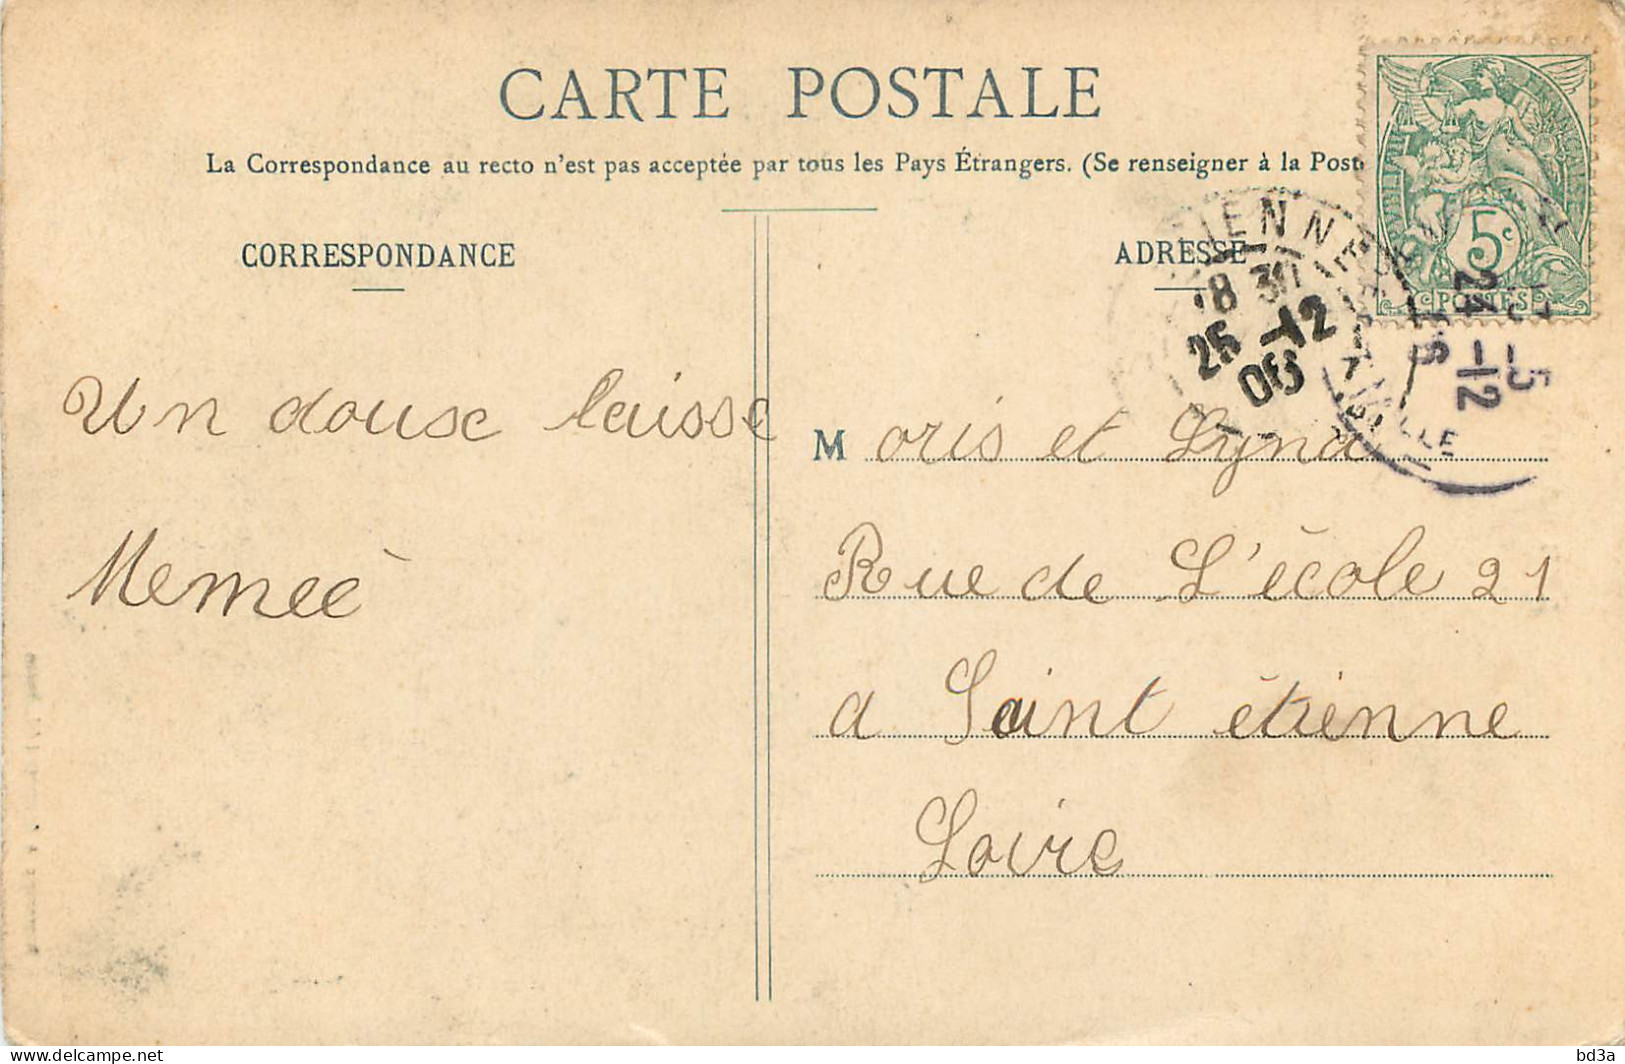 CARTE POSTALE
La Correspondance au recto n'est pas acceptée par tous les Pays Étrangers. (Se renseigner à la Post
CORRESPONDANCE
ADRESSE
RÉPUBLIQUE FRANÇAISE
5c
POSTES
IENNE
8 30
25 -12
06
24 -12
VILLE
Un douse laisse
Memeè
M oris et Lyna
Rue de L'école 21
a Saint étienne
Loire
delcampe.net
bd3a